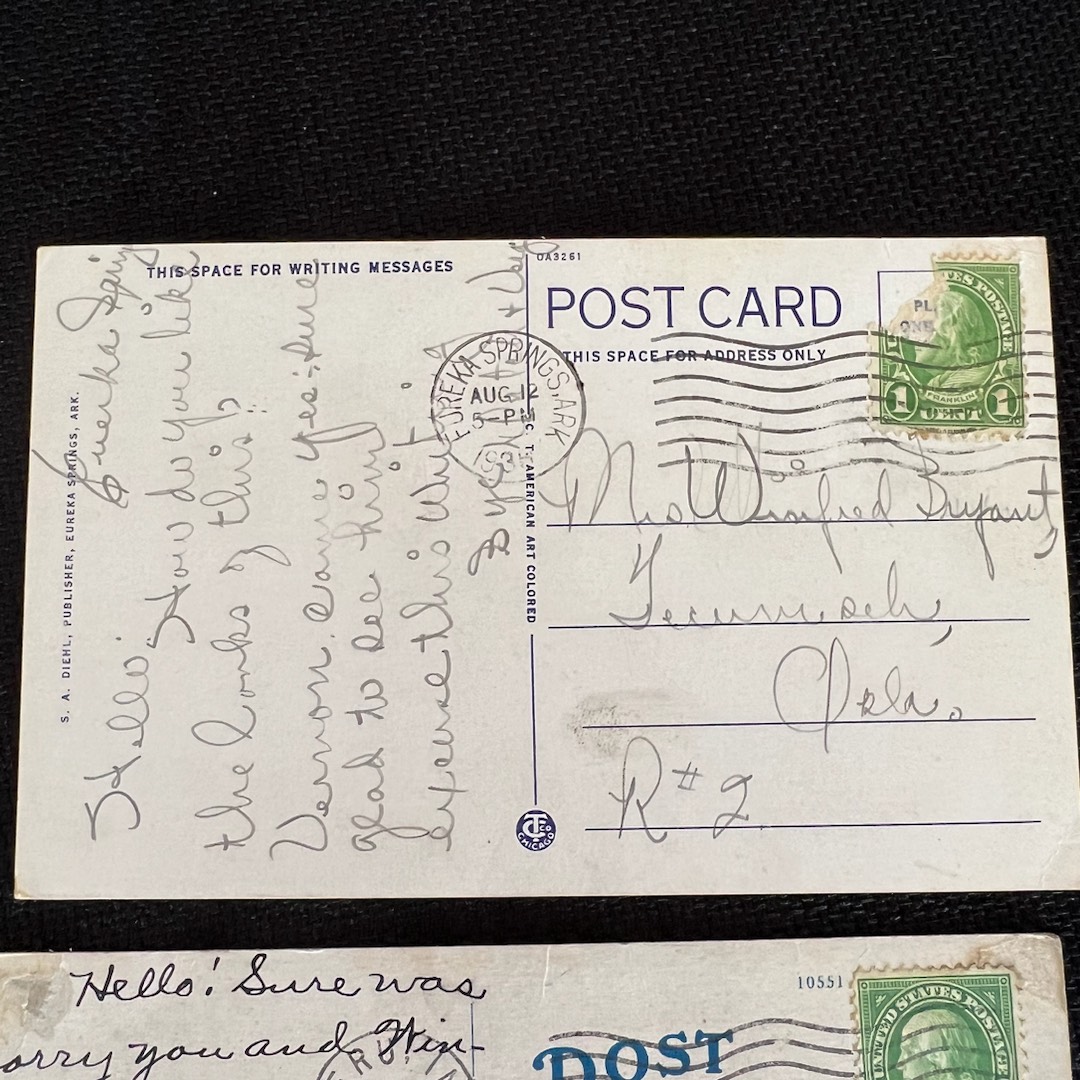 THIS SPACE FOR WRITING MESSAGES
Eureka Spring
Hello: How do you like
the looks of this,
Vernon came yes: sure
glad to see him
excuse this writ
S. A. DIEHL, PUBLISHER, EUREKA SPRINGS, ARK.
OA3261
POST CARD
THIS SPACE FOR ADDRESS ONLY
EUREKA SPRINGS, ARK
AUG 12
5-PM
C. T. AMERICAN ART COLORED
CHICAGO
PL
ONE
TES POSTAGE
FRANKLIN
1 1
Mrs Winifred Bryant,
Tecumseh,
Okla.
R#2
Hello! Sure was
orry you and Win-
10551
POST
UNITED STATES POSTAGE